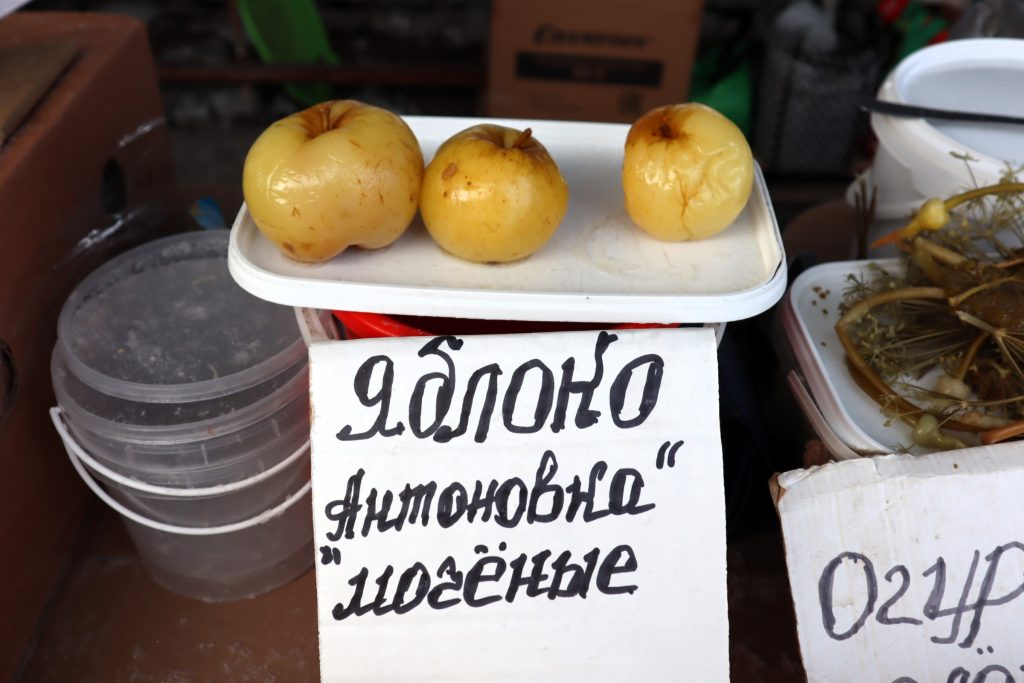 Яблоко
Антоновка"
"мочёные
Огур